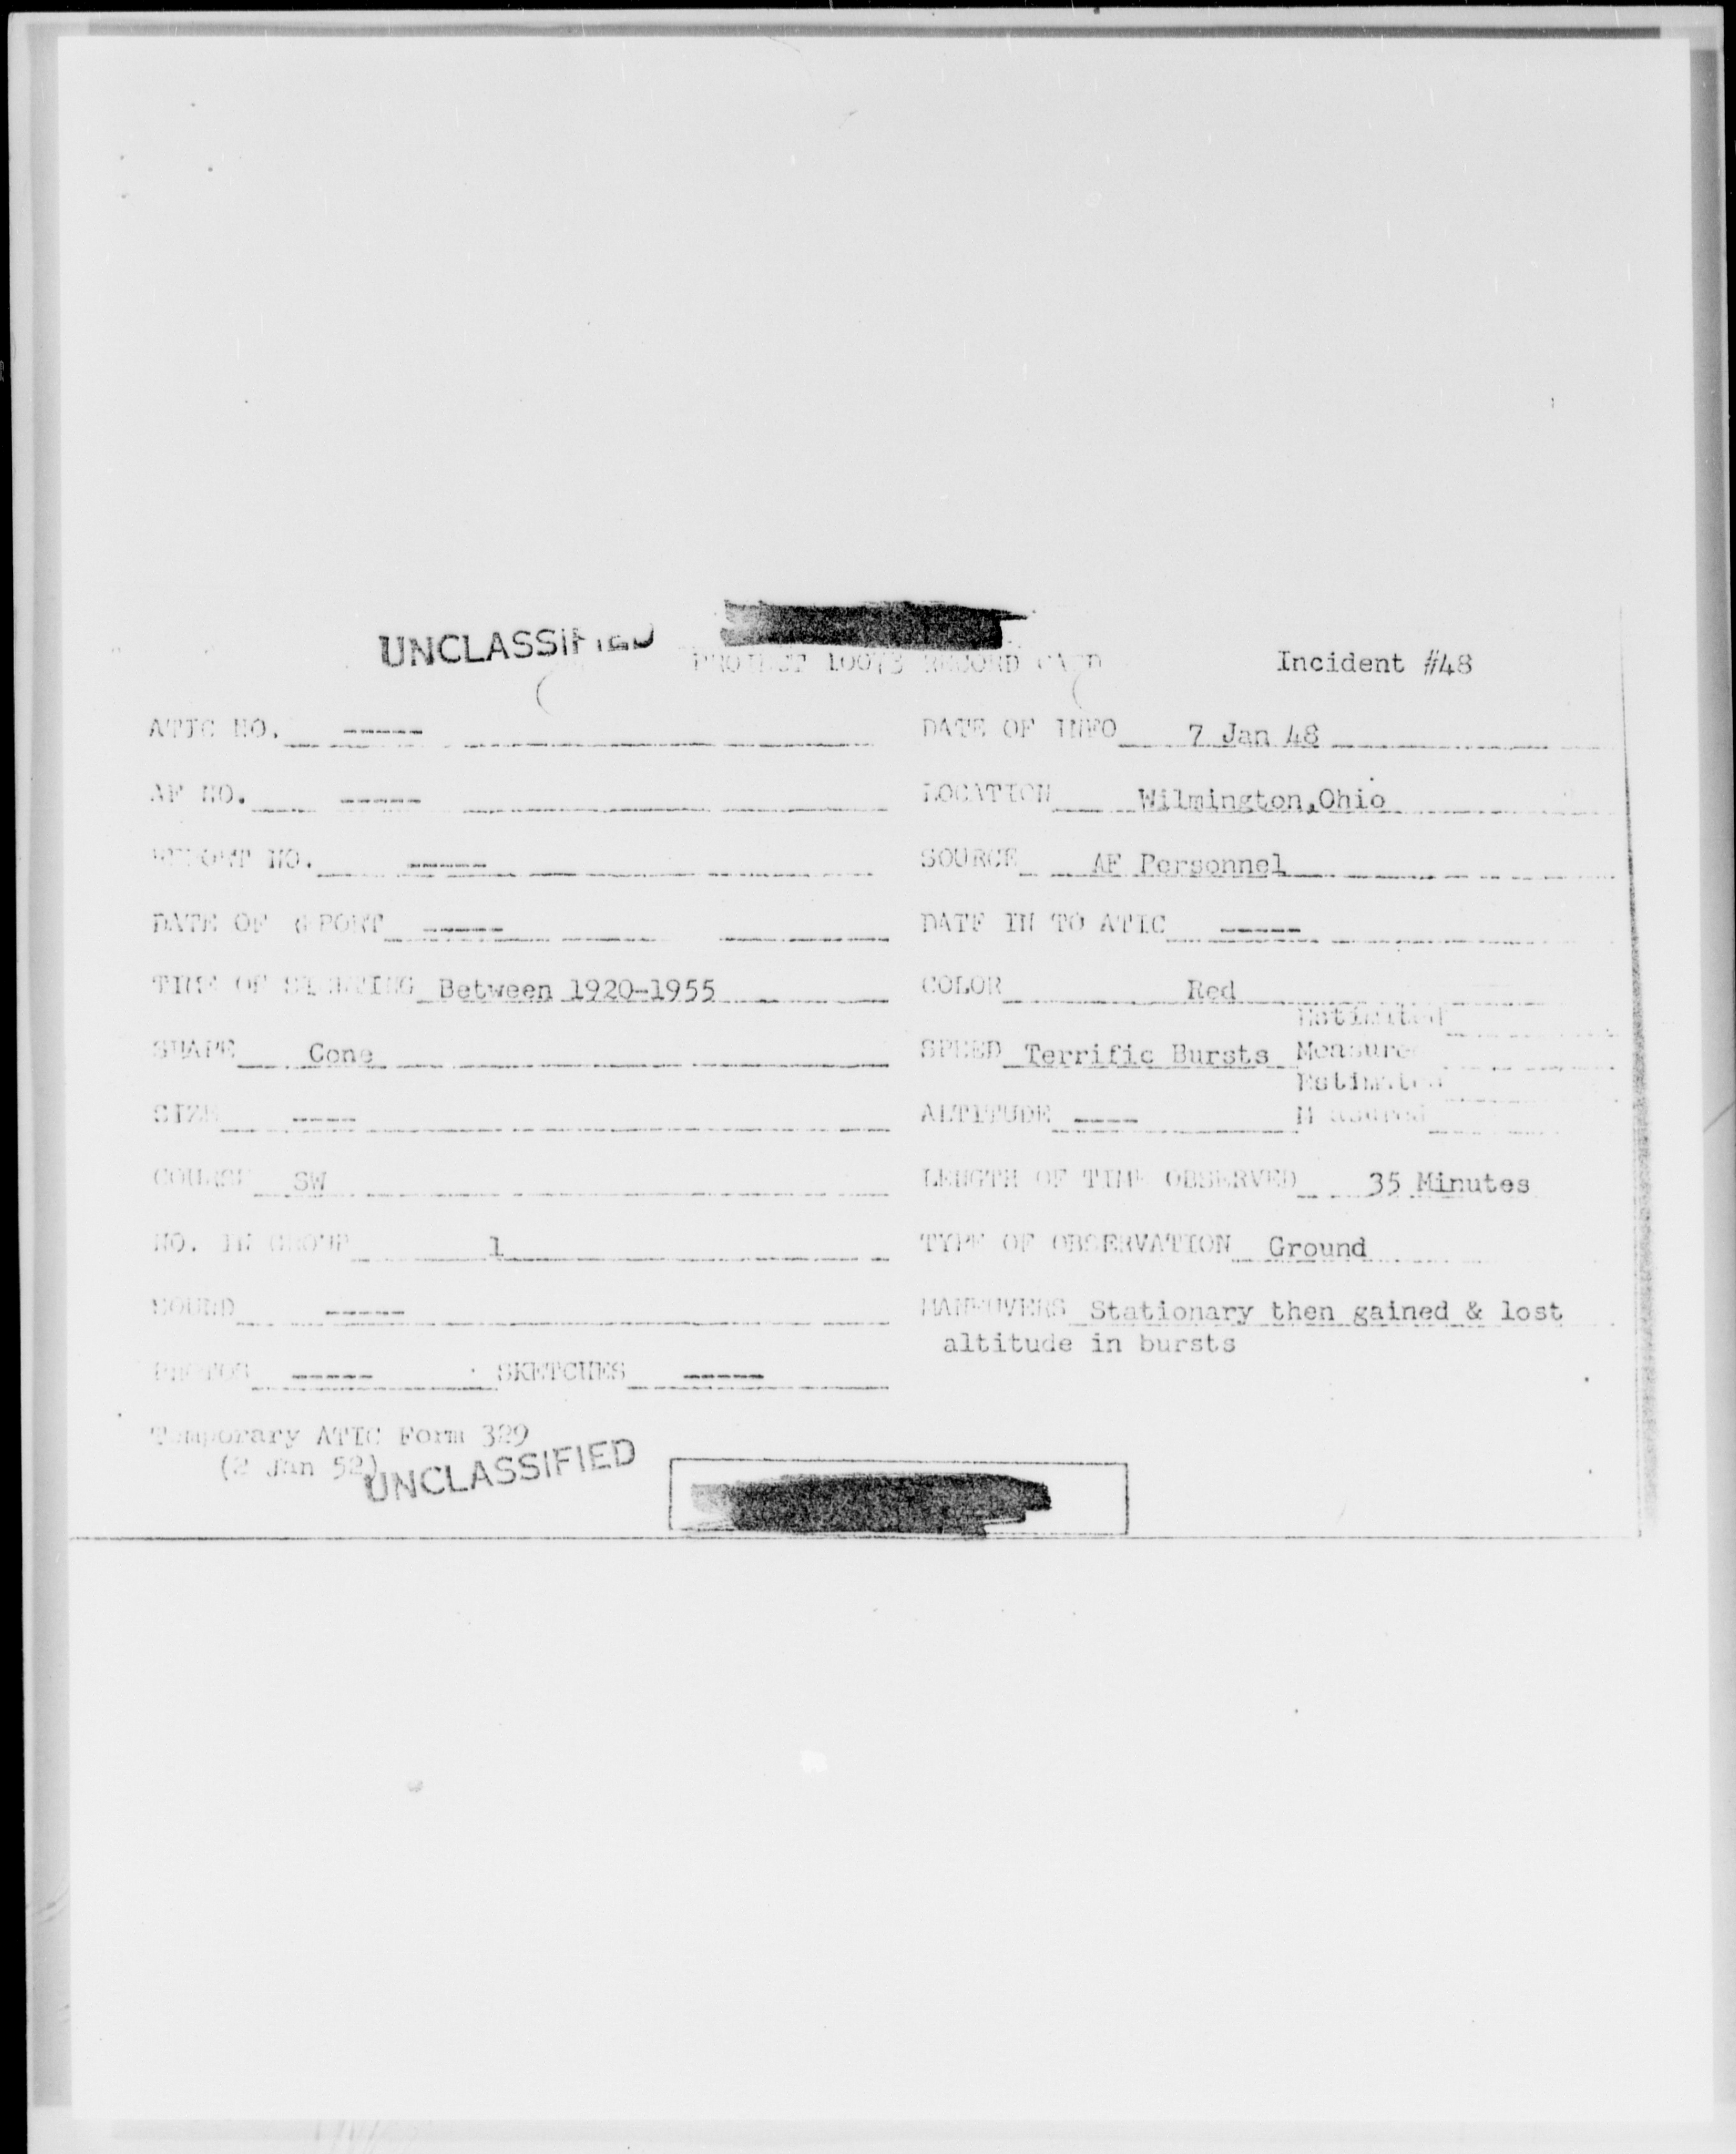 UNCLASSIFIED
PROJECT 10073 RECORD CARD Incident #48
ATIC NO. ----- DATE OF INFO 7 Jan 48
AF NO. ----- LOCATION Wilmington,Ohio
REPORT NO. ----- SOURCE AF Personnel
DATE OF REPORT ----- DATE IN TO ATIC -----
TIME OF SIGHTING Between 1920-1955 COLOR Red
Estimated
SHAPE Cone SPEED Terrific Bursts Measured
Estimated
SIZE ---- ALTITUDE ---- Measured
COURSE SW LENGTH OF TIME OBSERVED 35 Minutes
NO. IN GROUP 1 TYPE OF OBSERVATION Ground
SOUND ----- MANEUVERS Stationary then gained & lost
altitude in bursts
PHOTOS ----- SKETCHES -----
Temporary ATIC Form 329
(2 Jan 52)
UNCLASSIFIED